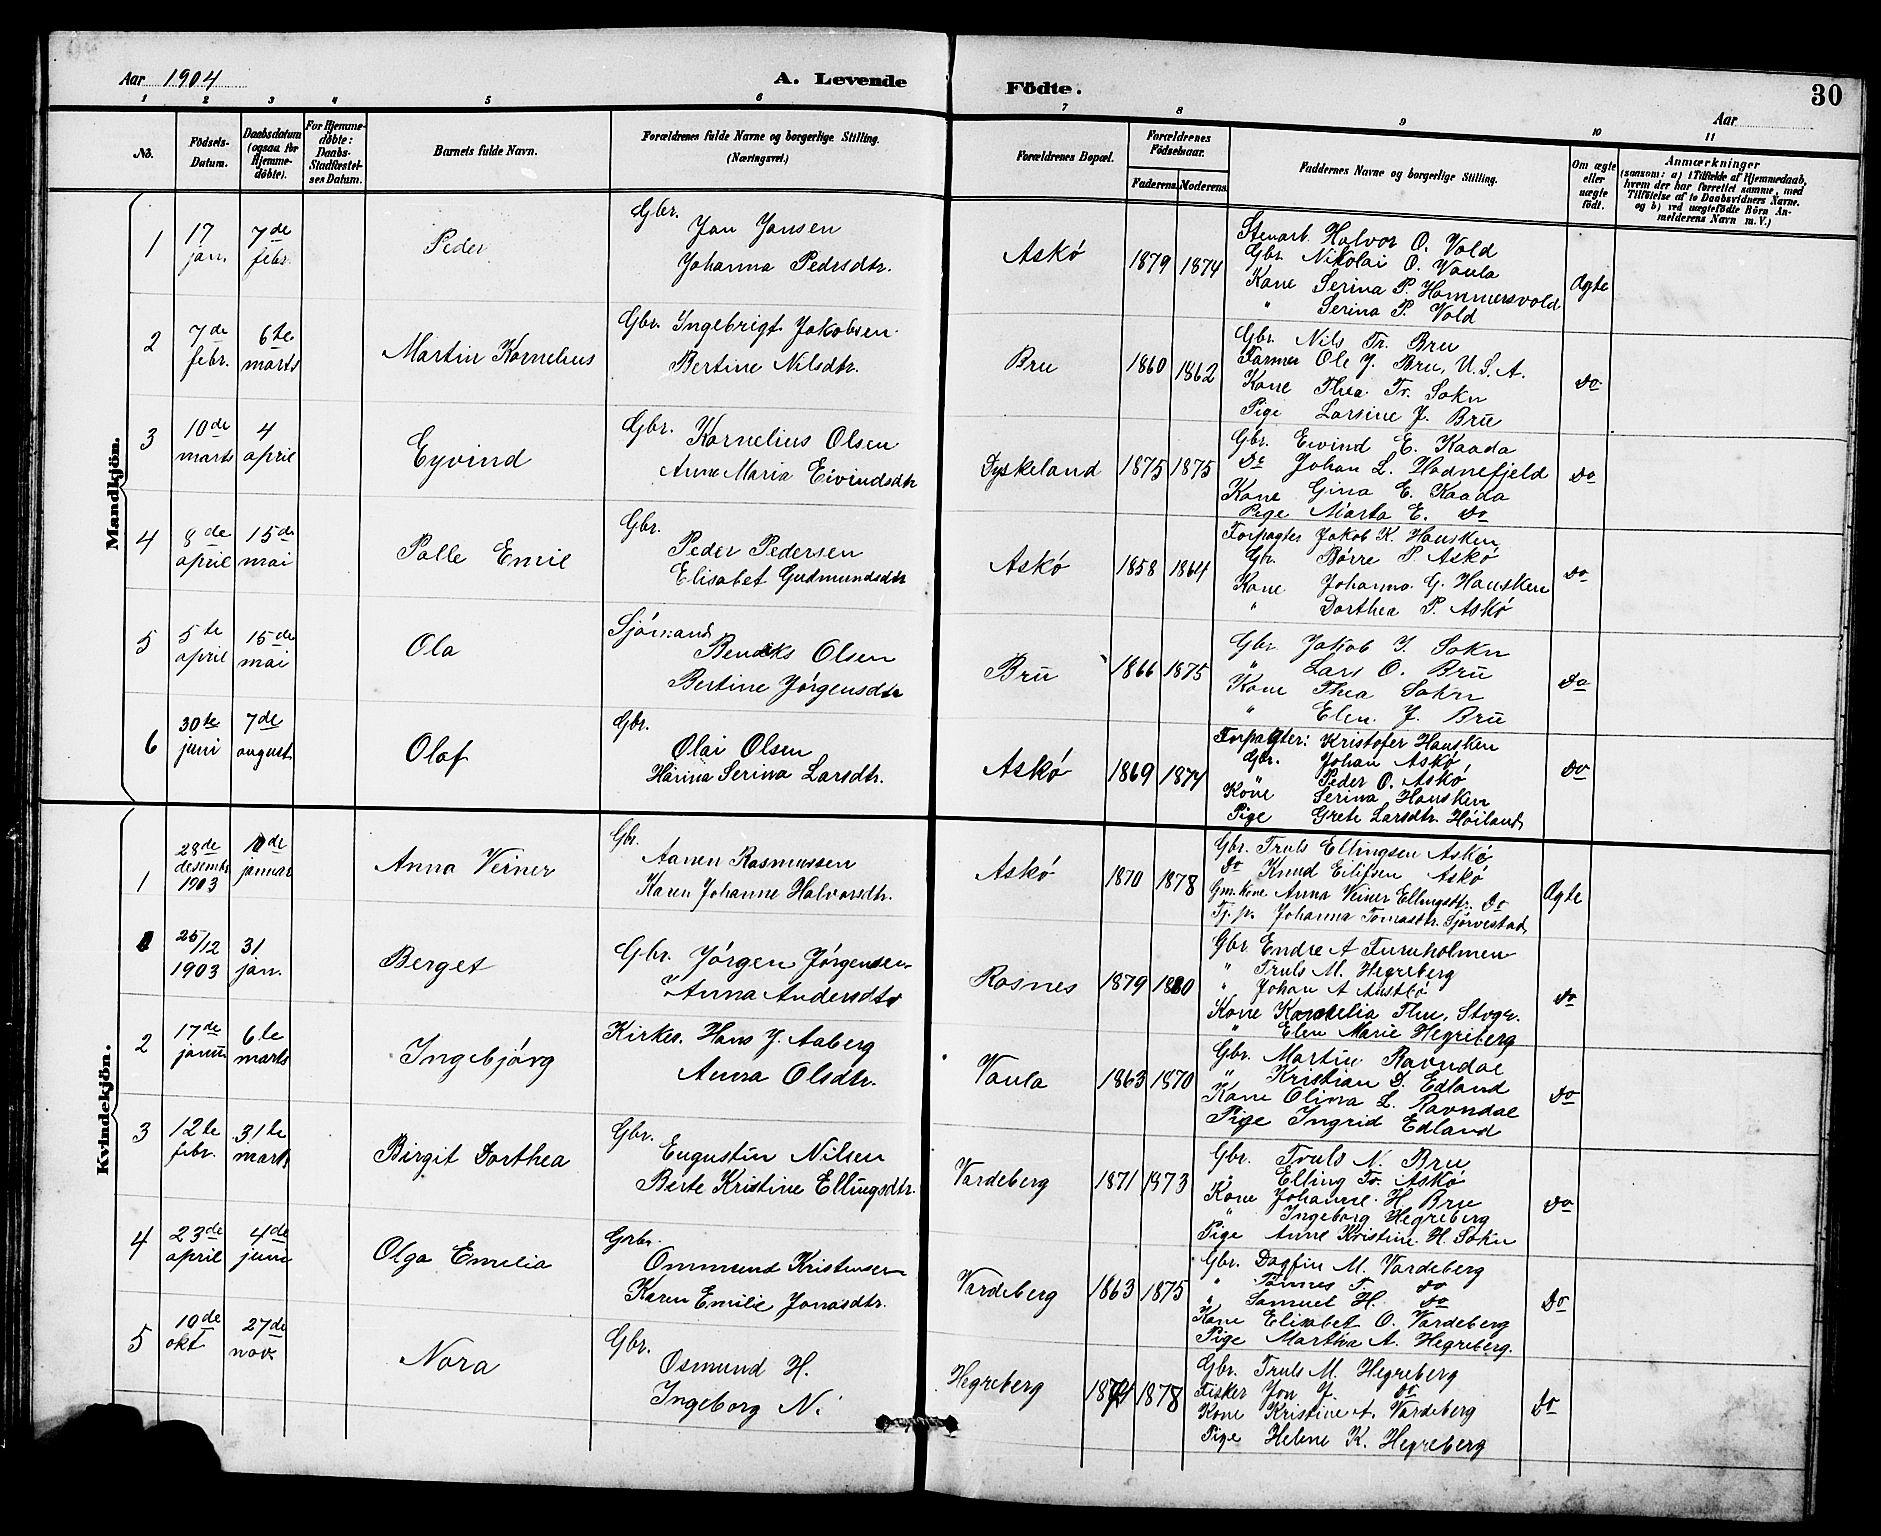 Aar 1904
A. Levende Födte.
Aar
30
1 2 3 4 5 6 7 8 9 10 11
No. Födsels-Datum. Daabsdatum (ogsaa for Hjemme-döbte). For Hjemme-döbte: Daabs-Stadfæstel-ses Datum. Barnets fulde Navn. Forældrenes fulde Navne og borgerlige Stilling. (Næringsvei.) Forældrenes Bopæl. Forældrenes Födselsaar. Faderens. Moderens. Faddernes Navne og borgerlige Stilling. Om ægte eller uægte födt. Anmærkninger (saasom: a) i Tilfælde af Hjemmedaab, hvem der har forrettet samme, med Tilföielse af to Daabsvidners Navne. og b) ved uægtefödte Börn An-melderens Navn m. V.)
Mandkjön.
1 17 jan. 7de febr. Peder Gbr. Jan Jansen Johanna Pedersdtr. Askø 1879 1874
Stenarb. Halvor O. Vold
Gbr. Nikolai O. Vaula
Kone Serina P. Hammersvold
" Serina P. Vold
Ægte
2 7de febr. 6te marts Martin Kornelius Gbr. Ingebrigt Jakobsen Bertine Nilsdtr. Bru 1860 1862
Gbr. Nils Tr. Bru
Farmer Ole J. Bru, U.S.A.
Kone Thea Tr. Sokn
Pige Larsine J. Bru
do
3 10de marts 4 april Eyvind Gbr. Kornelius Olsen Anne Maria Eivindsdtr Dyskeland 1875 1875
Gbr. Eivind E. Kaada
do Johan L. Hodnefjeld
Kone Gina E. Kaada
Pige Márta E. do
do
4 8de april 15de mai Palle Emil Gbr. Peder Pedersen Elisabet Gudmundsdtr Askø 1858 1864
Forpagter Jakob K. Hausken
Gbr. Børre P. Askø
Kone Johanna G. Hausken
" Dorthea P. Askø
do
5 5te april 15de mai Ola Sjømand Bendiks Olsen Bertine Jørgensdtr Bru 1866 1875
Gbr. Jakob I. Sokn
" Lars O. Bru
Kone Thea Sokn
" Elen J. Bru
do
6 30te juni 7de august Olaf Gbr. Olai Olsen Harina Serina Larsdtr. Askø 1869 1874
Forpagter: Kristofer Hausken
Gbr. Johan Askø
" Peder O. Askø
Kone Serina Hausken
Pige Grete Larsdtr. Høiland
do
Kvindekjön.
1 28de desembr 1903 januar Anna Veiner Gbr. Aanen Rasmussen Karen Johanne Halvorsdtr. Askø 1870 1878
Gbr. Truls Ellingsen Askø
do Knud Eilefsen Askø
Gm. Kone Anna Veiner Ellingsdtr. do
Tj.p. Johanna Tomasdtr. Sjørvestad
Ægte
25/12 1903 31 jan. Berget Gbr. Jørgen Jørgensen Anna Andersdtr Rosnes 1879 1880
Gbr Endre A Furuholmen
" Truls M. Hegreberg
" Johan A Austbø
Kone Kornelia Thu, Stvgr.
" Elen Marie Hegreberg
do
2 17de januar 6te marts Ingebjörg Kirkes. Hans J. Aaberg Anna Olsdtr. Vaula 1863 1870
Gbr. Martin Ravndal
" Kristian D. Edland
Kone Olina L. Ravndal
Pige Ingrid Edland
do
3 12te febr. 31te marts Birgit Dorthea Gbr. Eugustin Nilsen Berte Kristine Ellingsdtr. Vardeberg 1871 1873
Gbr. Truls N. Bru
" Elling Tr. Askø
Kone Johanne H. Bru
" Ingeborg Hegreberg
Pige Anne Kristine H. Sokn
do
4 23de april 4de juni Olga Emelia Grbr. Ommund Kristensen Karen Emilie Jonasdtr. Vardeberg 1863 1875
Gbr. Dagfin M. Vardeberg
" Tønnes T. do
" Samuel H. do
Kone Elisabet O. Vardeberg
Pige Martha A. Hegreberg.
do
5 10de okt 27de nov. Nora Gbr. Osmund H. Ingeborg N. Hegreberg 1878
Gbr. Truls M. Hegreberg
Fisker Jon J. do
Kone Kristine A. Vardeberg
Pige Helene K. Hegreberg
do